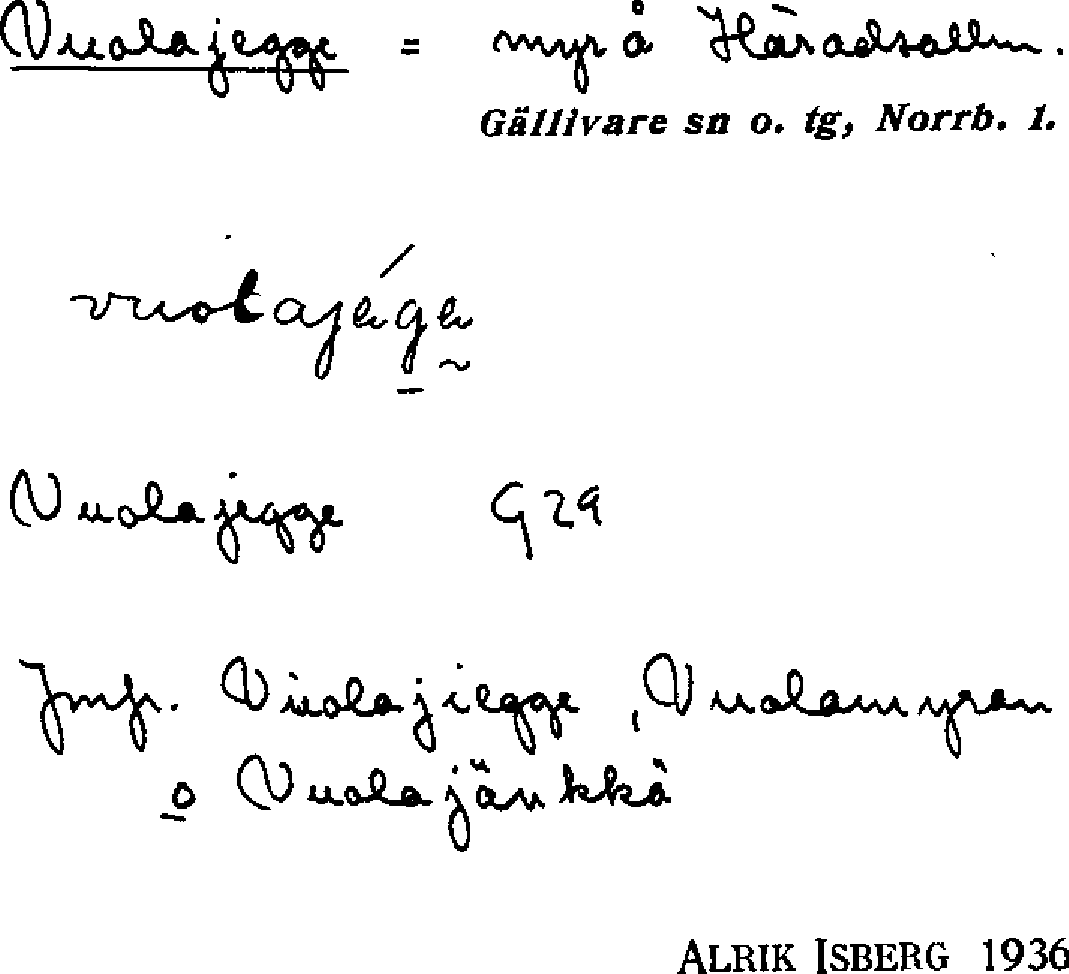 Vuolajegge = myr å Häradsallm.
Gällivare sn o. tg, Norrb. l.
vuolajége
Vuolajegge G29
Jmfr. Vuolajiegge, Vuolamyran
o Vuolajänkkä
ALRIK ISBERG 1936